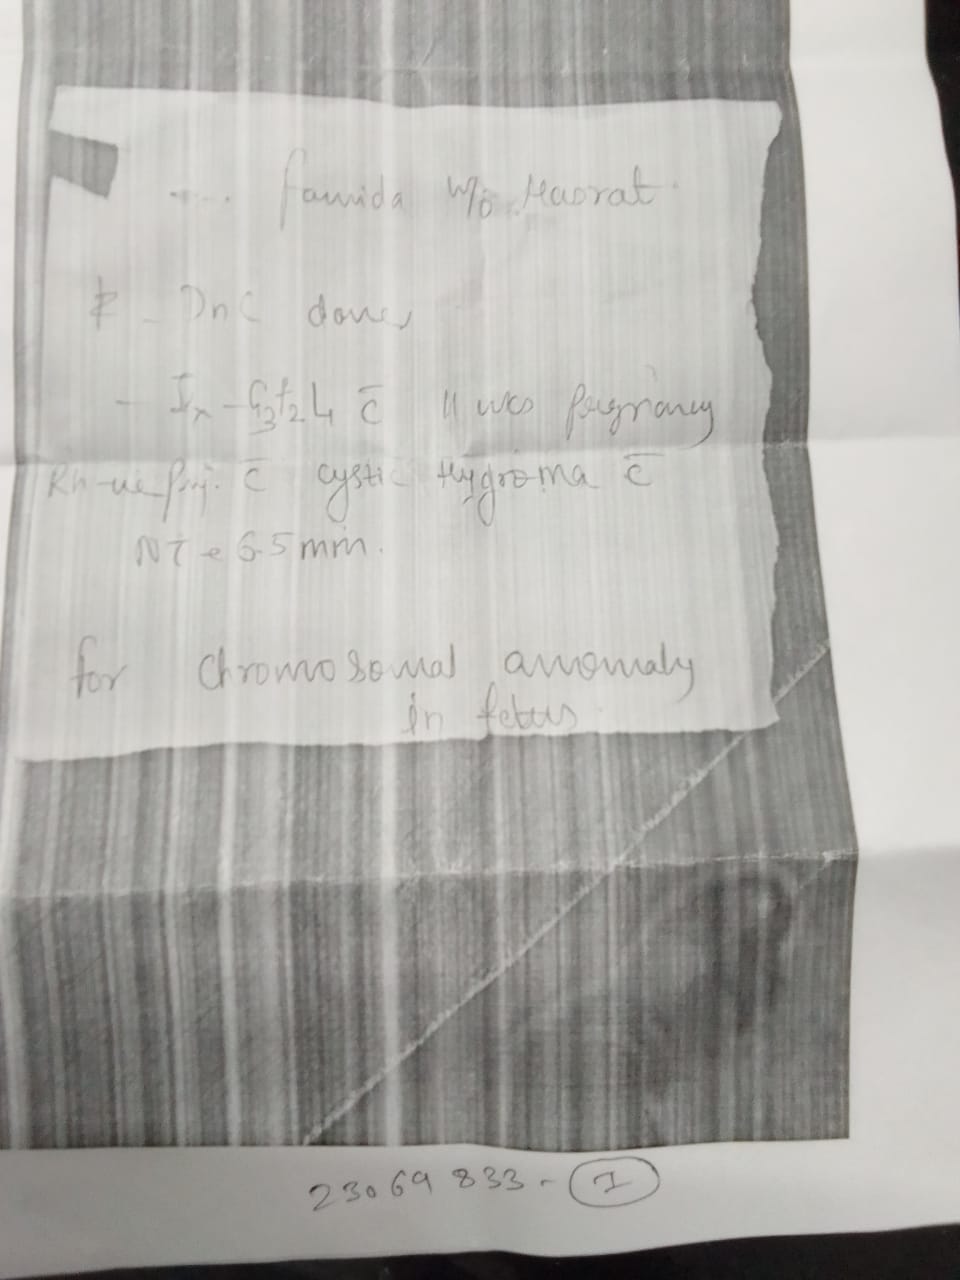 Famida W/o Hasrat
DnC done
- Ix - G3 L c̄ 11 wks pregnancy
Rh -ve Preg. c̄ cystic Hygroma c̄
NT e 6.5 mm.
for Chromosomal anomaly
in fetus.
23069833 - 1